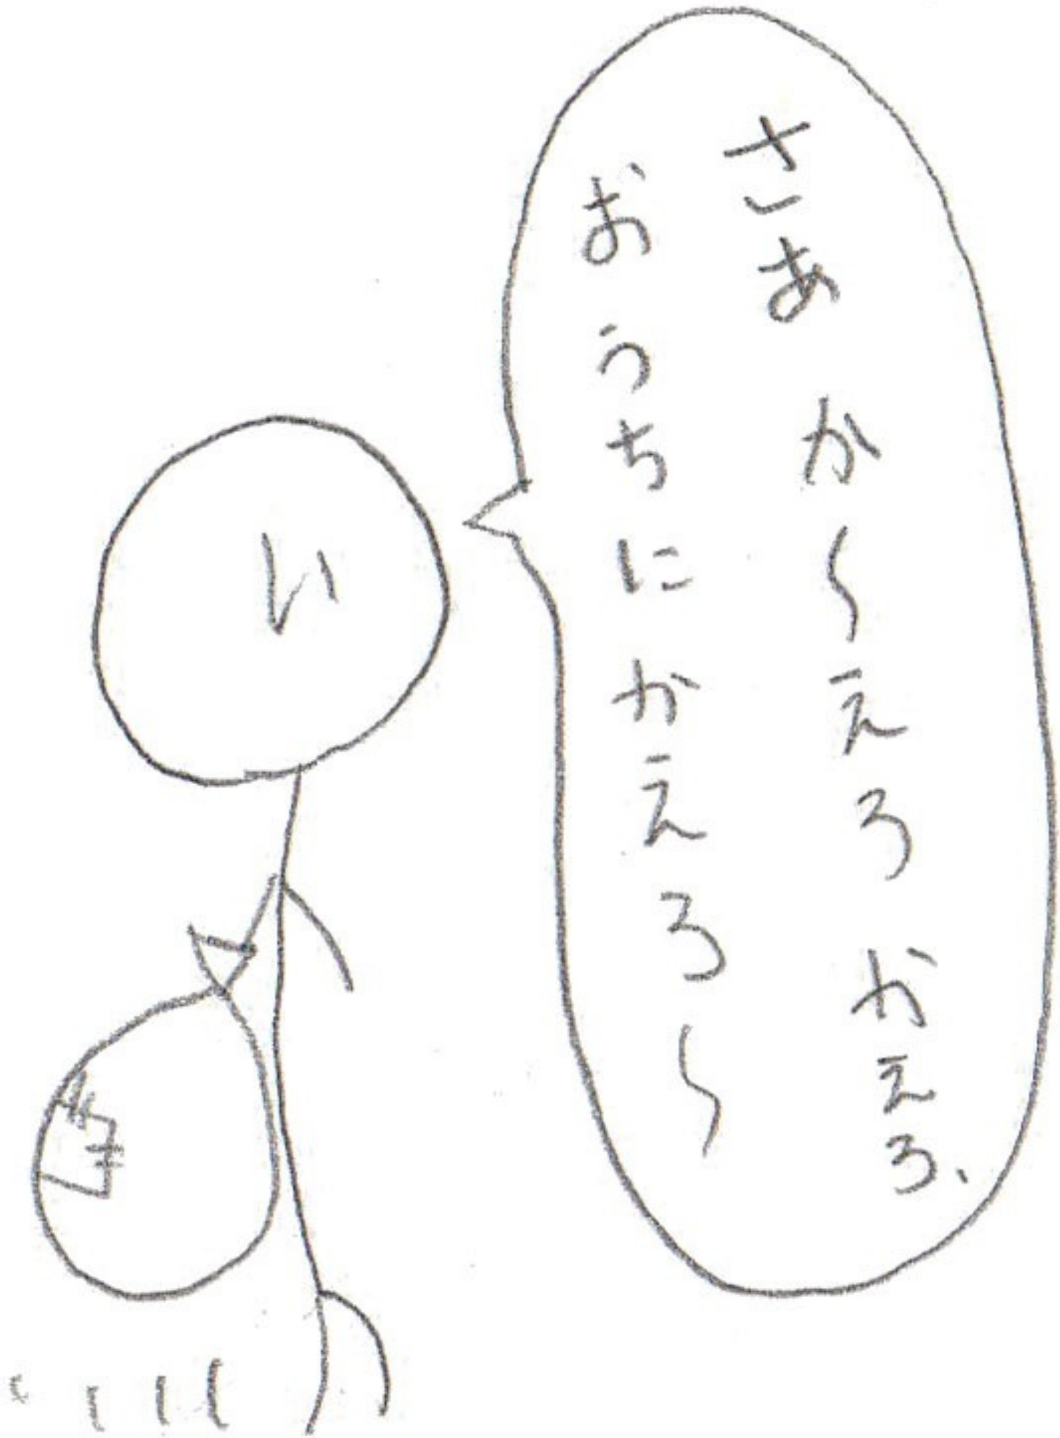 さあ か～えろ かえろ、
おうちにかえろ～
い